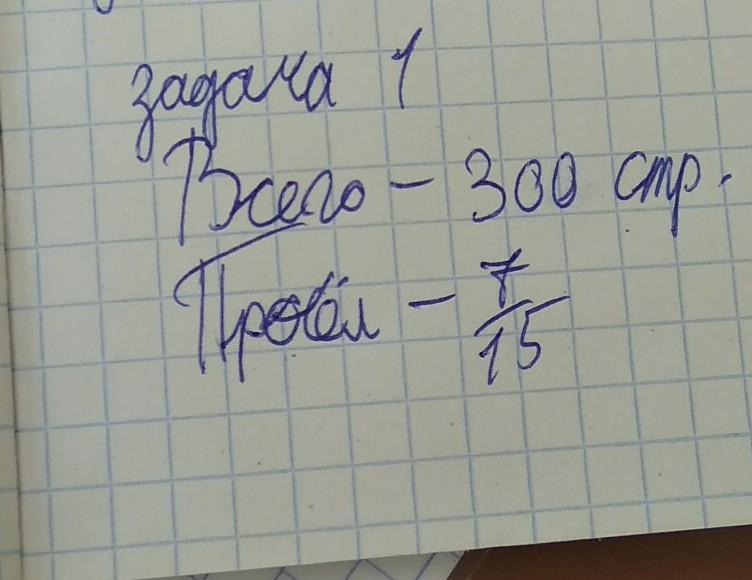 задача 1
Всего - 300 стр.
Прочёл - 7/15